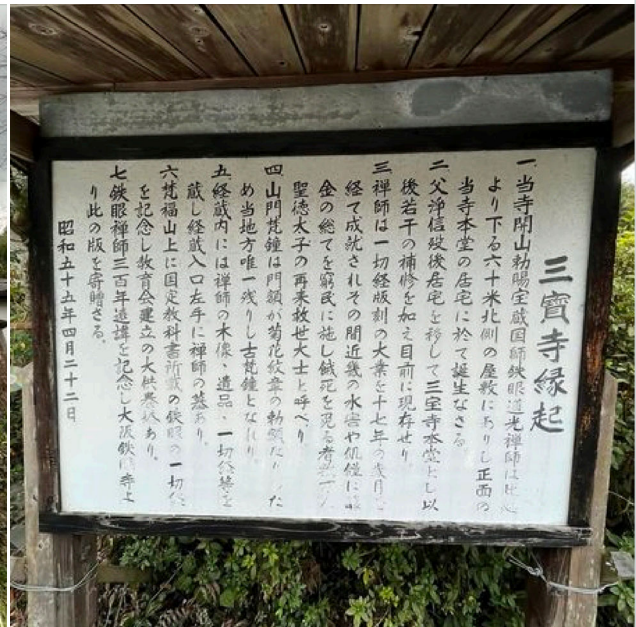 三寶寺縁起
一、当寺開山勅賜宝蔵国師鉄眼道光禅師は
より下る六十米北側の屋敷にありし正面の
当寺本堂の居宅に於て誕生なさる
二、父浄信歿後居宅を移して三宝寺本堂とし以
後若干の補修を加え目前に現存せり
三、禅師は一切経版刻の大業を十七年の歳月を
経て成就されその間近畿の水害や飢饉に
金の総てを窮民に施し餓死を免る者
聖徳太子の再来救世大士と呼べり
四、山門梵鐘は門額が菊花紋章の勅額たりし
め当地方唯一残りし古梵鐘となれり
五、経蔵内には禅師の木像、遺品、一切経等を
蔵し経蔵入口左手に禅師の墓あり
六、梵福山上に国定教科書所載の鉄眼の一切経
を記念し教育会建立の大供養塔あり。
七、鉄眼禅師三百年遠諱を記念し大阪鉄眼寺よ
り此の版を寄贈さる。
昭和五十五年四月二十二日